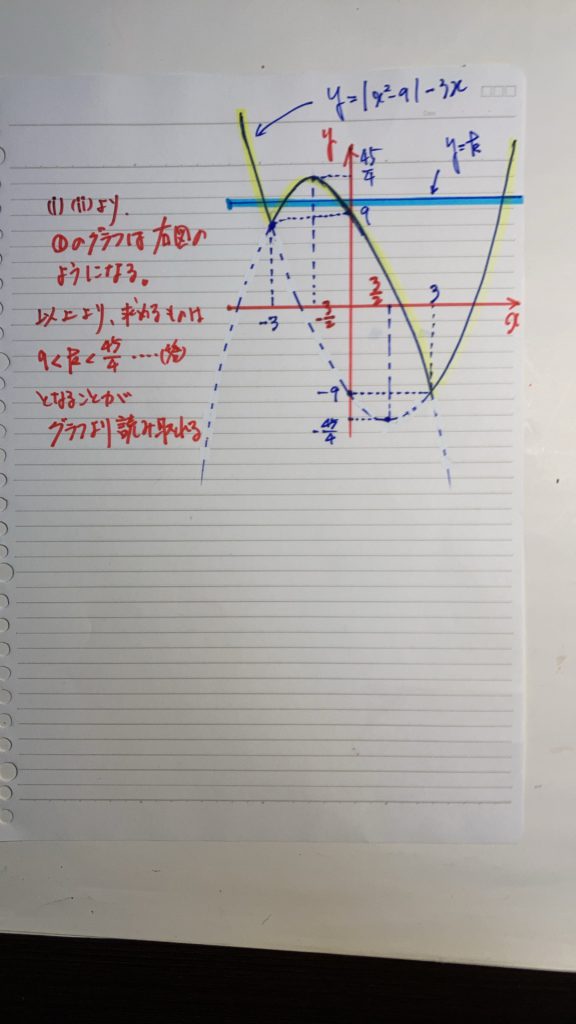 y=|x²-9|-3x
y
45/4
y=k
9
(i)(ii)より、
①のグラフは右図の
ようになる。
以上より、求めるものは
9<k<45/4 ……(答)
となることが
グラフより読み取れる
-3
-3/2
3/2
3
x
-9
-45/4